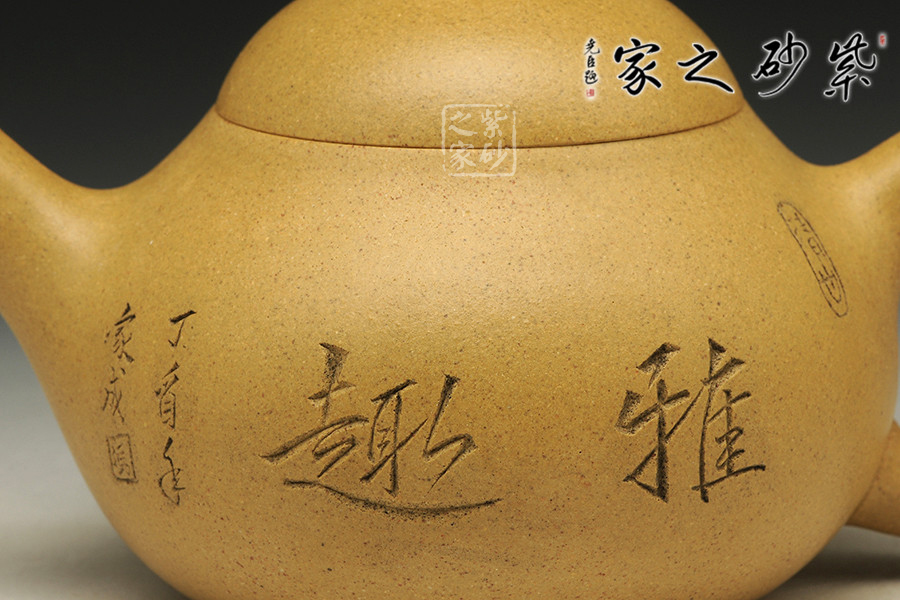 紫砂之家
紫砂
之家
雅趣
丁酉年
家成